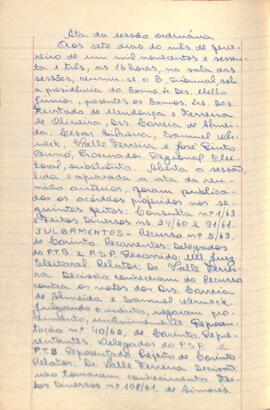 Ata da sessão ordinária
Aos sete dias do mês de feve-
reiro de um mil novecentos e sessen-
ta e três, às 16 horas, na sala das
sessões, reuniu-se o E. Tribunal sob
a presidência do Exmo. Sr. Des. Mello
Júnior, presentes os Exmos. Srs. Des.
Furtado de Mendonça e Ferreira
de Oliveira, Drs. Correia de Almei-
da, Cesar Silveira, Samuel We-
rneck, Valle Ferreira e José Pinto
Procurador Regional Elei-
toral, substituto. Aberta a sessão,
lida e aprovada a ata da reu-
nião anterior, foram publica-
dos os acórdãos proferidos nos se-
guintes feitos: Consulta nº 1/63
Feitos Diversos nºs 94/60 e 91/61.
JULGAMENTOS - Recurso nº 3/63.
de Corinto. Recorrentes: Delegados
do P.T.B. e P.S.P. Recorrido: MM. Juiz
Eleitoral. Relator: Dr. Valle Ferrei-
ra. Decisão: conheceram do recurso
contra os votos dos Drs. Correia
de Almeida e Samuel Werneck.
Julgando o mérito, negaram pro-
vimento, unanimemente. Represen-
tação nº 40/62, de Corinto. Repre-
sentantes: Delegados do P.S.P. e
P.T.B. Representado: Prefeito de Corinto
Relator: Dr. Valle Ferreira. Decisão:
não tomaram conhecimento. Fei-
tos Diversos nº 108/61, de Simones.